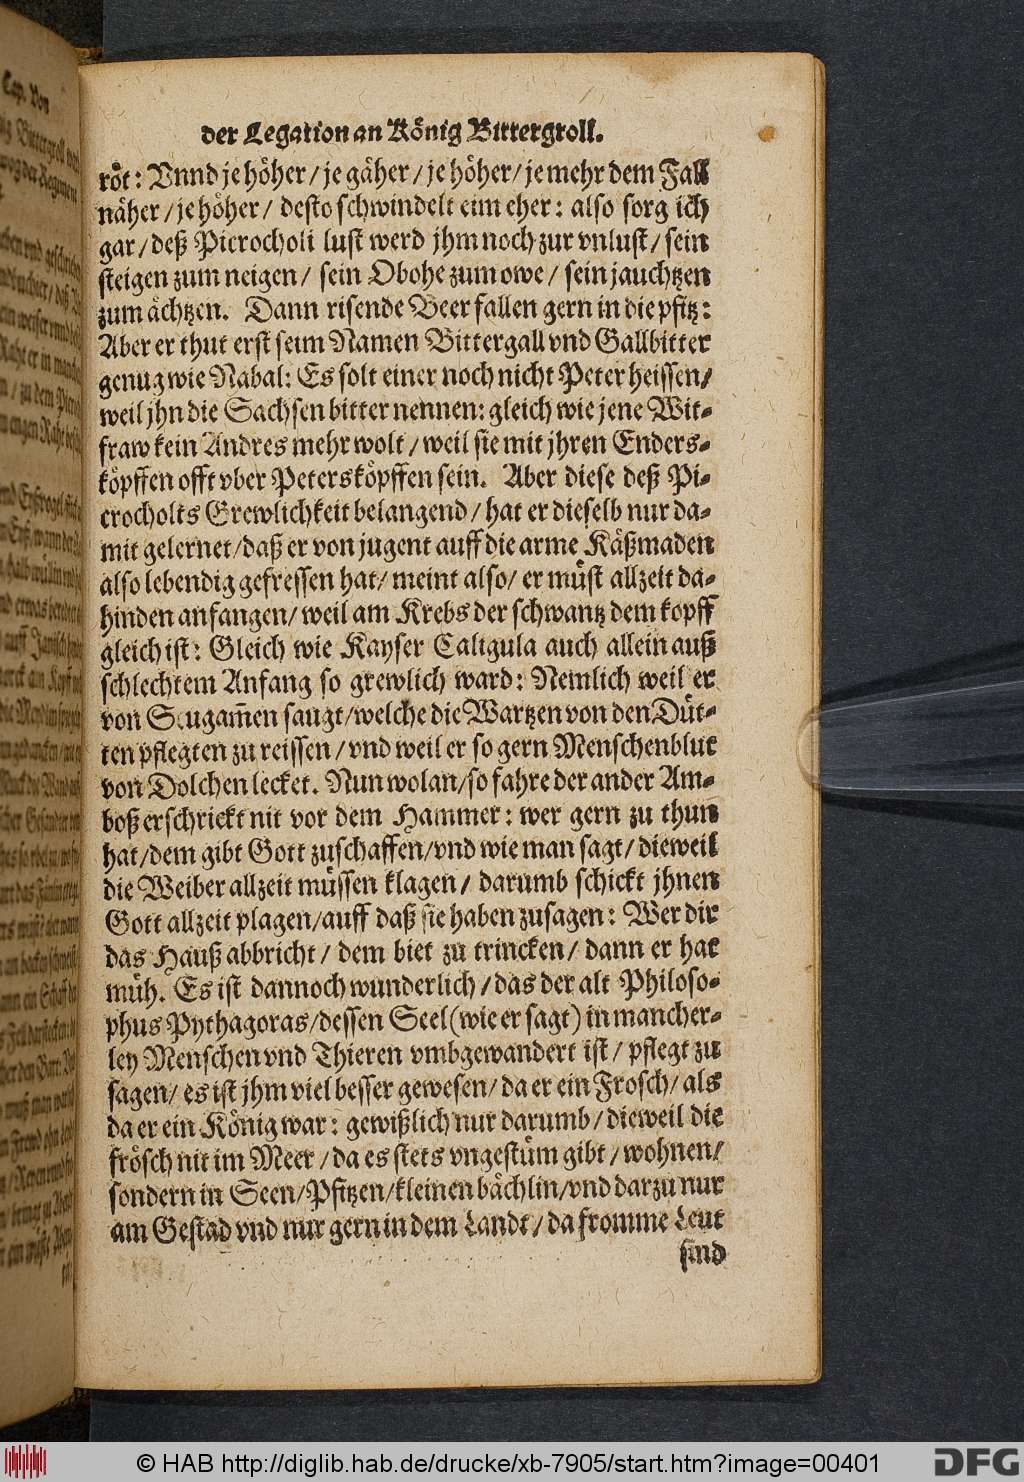 der Legation an König Bittergroll.
röt: Vnnd je höher / je gäher / je höher / je mehr dem Fall
näher / je höher / desto schwindelt eim eher: also sorg ich
gar / deß Picrocholi lust werd jhm noch zur vnlust / sein
steigen zum neigen / sein Obohe zum owe / sein jauchtzen
zum ächtzen. Dann risende Beer fallen gern in die pfitz:
Aber er thut erst seim Namen Bittergall vnd Gallbitter
genug wie Nabal: Es solt einer noch nicht Peter heissen /
weil jhn die Sachsen bitter nennen: gleich wie jene Wit-
fraw kein Andres mehr wolt / weil sie mit jhren Enders-
köpffen offt vber Petersköpffen sein. Aber diese deß Pi-
crocholts Grewlichkeit belangend / hat er dieselb nur da-
mit gelernet / daß er von jugent auff die arme Käßmaden
also lebendig gefressen hat / meint also / er müst allzeit da-
hinden anfangen / weil am Krebs der schwantz dem kopff
gleich ist: Gleich wie Kayser Caligula auch allein auß
schlechtem Anfang so grewlich ward: Nemlich weil er
von Seugam̃en saugt / welche die Wartzen von den Düt-
ten pflegten zu reissen / vnd weil er so gern Menschenblut
von Dolchen lecket. Nun wolan / so fahre der ander Am-
boß erschrickt nit vor dem Hammer: wer gern zu thun
hat / dem gibt Gott zuschaffen / vnd wie man sagt / dieweil
die Weiber allzeit müssen klagen / darumb schickt jhnen
Gott allzeit plagen / auff daß sie haben zusagen: Wer dir
das Hauß abbricht / dem biet zu trincken / dann er hat
müh. Es ist dannoch wunderlich / das der alt Philoso-
phus Pythagoras / dessen Seel (wie er sagt) in mancher-
ley Menschen vnd Thieren vmbgewandert ist / pflegt zu
sagen / es ist jhm viel besser gewesen / da er ein Frosch / als
da er ein König war: gewißlich nur darumb / dieweil die
frösch nit im Meer / da es stets vngestüm gibt / wohnen /
sondern in Seen / Pfitzen / kleinen bächlin / vnd darzu nur
am Gestad vnd nur gern in dem Landt / da fromme Leut
sind
© HAB http://diglib.hab.de/drucke/xb-7905/start.htm?image=00401
DFG